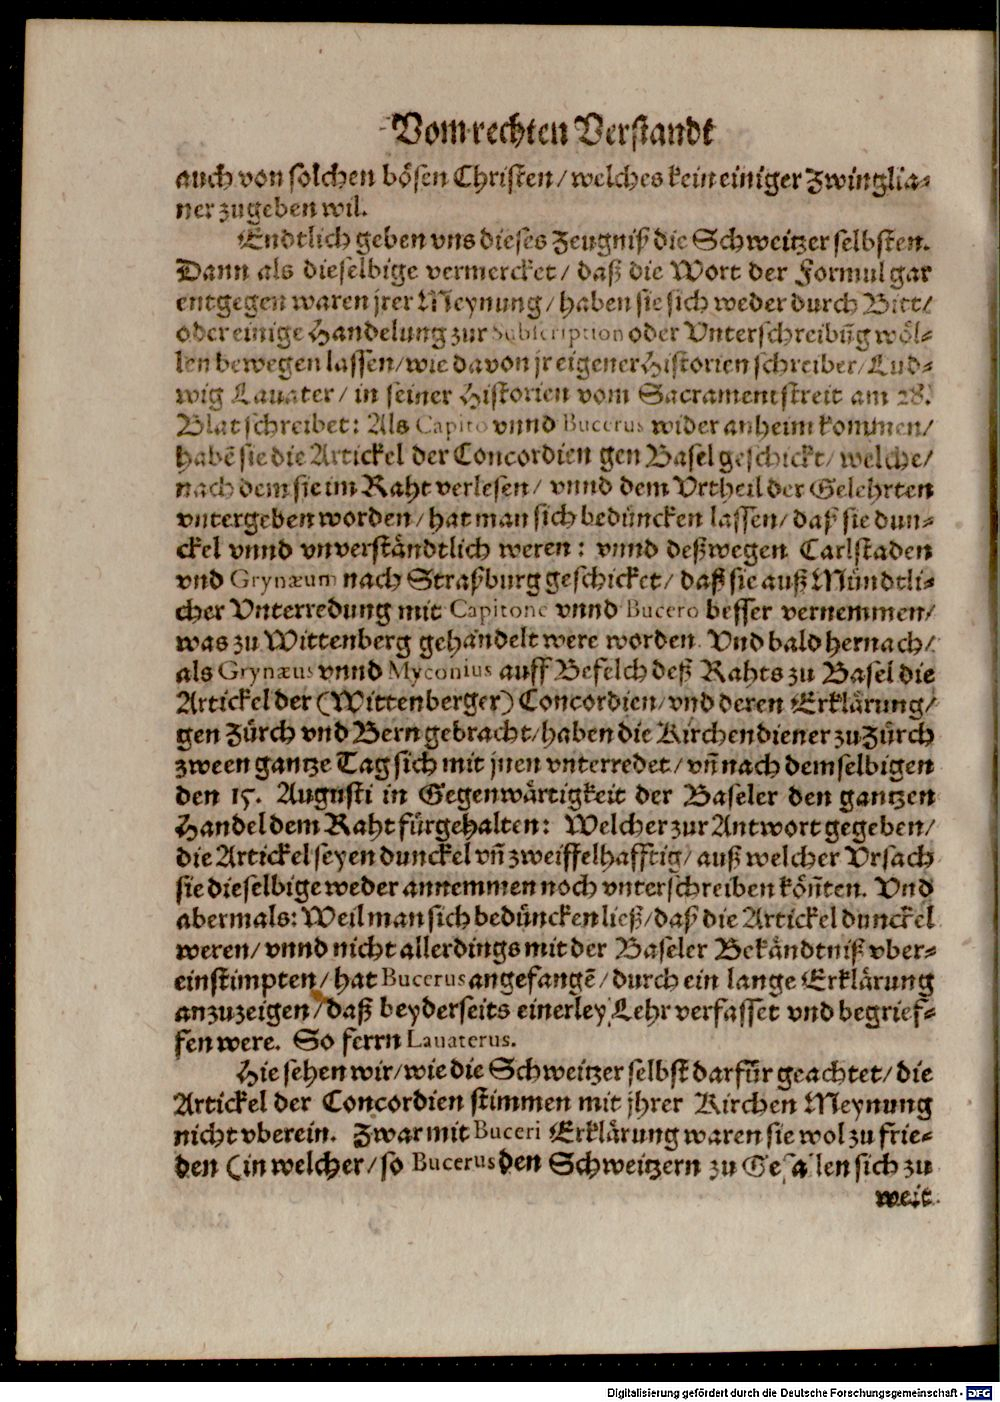 Vom rechten Verstandt
auch von solchen bösen Christen/ welches kein einiger Zwinglia-
ner zugeben wil.
Endtlich geben vns dieses Zeugniß die Schweitzer selbsten.
Dann als dieselbige vermercket/ daß die Wort der Formul gar
entgegen waren jrer Meynung/ haben sie sich weder durch Bitt/
oder einige Handelung zur Subscription oder Vnterschreibūg wöl-
len bewegen lassen/ wie davon jr eigener Historien schreiber/ Lud-
wig Lauater/ in seiner Historien vom Sacramentstreit am 28.
Blat schreibet: Als Capito vnnd Bucerus wider anheim kommen/
habē sie die Artickel der Concordien gen Basel geschickt/ welche/
nach dem sie im Raht verlesen/ vnnd dem Vrtheil der Gelehrten
vntergeben worden/ hat man sich bedüncken lassen/ daß sie dun-
ckel vnnd vnverständtlich weren: vnnd deßwegen Carlstaden
vnd Grynæum nach Straßburg geschicket/ daß sie auß Mündtli-
cher Vnterredung mit Capitone vnnd Bucero besser vernemmen/
was zu Wittenberg gehandelt were worden. Vnd bald hernach/
als Grynæus vnnd Myconius auff Befelch deß Rahts zu Basel die
Artickel der (Wittenberger) Concordien/ vnd deren Erklärung/
gen Zürch vnd Bern gebracht/ haben die Kirchendiener zu Zürch
zween gantze Tag sich mit jnen vnterredet/ vn̄ nach demselbigen
den 15. Augusti in Gegenwärtigkeit der Baseler den gantzen
Handel dem Raht fürgehalten: Welcher zur Antwort gegeben/
die Artickel seyen dunckel vn̄ zweiffelhafftig/ auß welcher Vrsach
sie dieselbige weder annemmen noch vnterschreiben kön̄ten. Vnd
abermals: Weil man sich bedüncken ließ/ daß die Artickel dunckel
weren/ vnnd nicht allerdings mit der Baseler Bekändtniß vber-
einstimpten/ hat Bucerus angefangē/ durch ein lange Erklärung
anzuzeigen/ daß beyderseits einerley Lehr verfasset vnd begrief-
fen were. So ferrn Lauaterus.
Hie sehen wir/ wie die Schweitzer selbst darfür geachtet/ die
Artickel der Concordien stimmen mit jhrer Kirchen Meynung
nicht vberein. Zwar mit Buceri Erklärung waren sie wol zu frie-
den (in welcher/ so Bucerus den Schweitzern zu Gefallen sich zu
weit
Digitalisierung gefördert durch die Deutsche Forschungsgemeinschaft - DFG